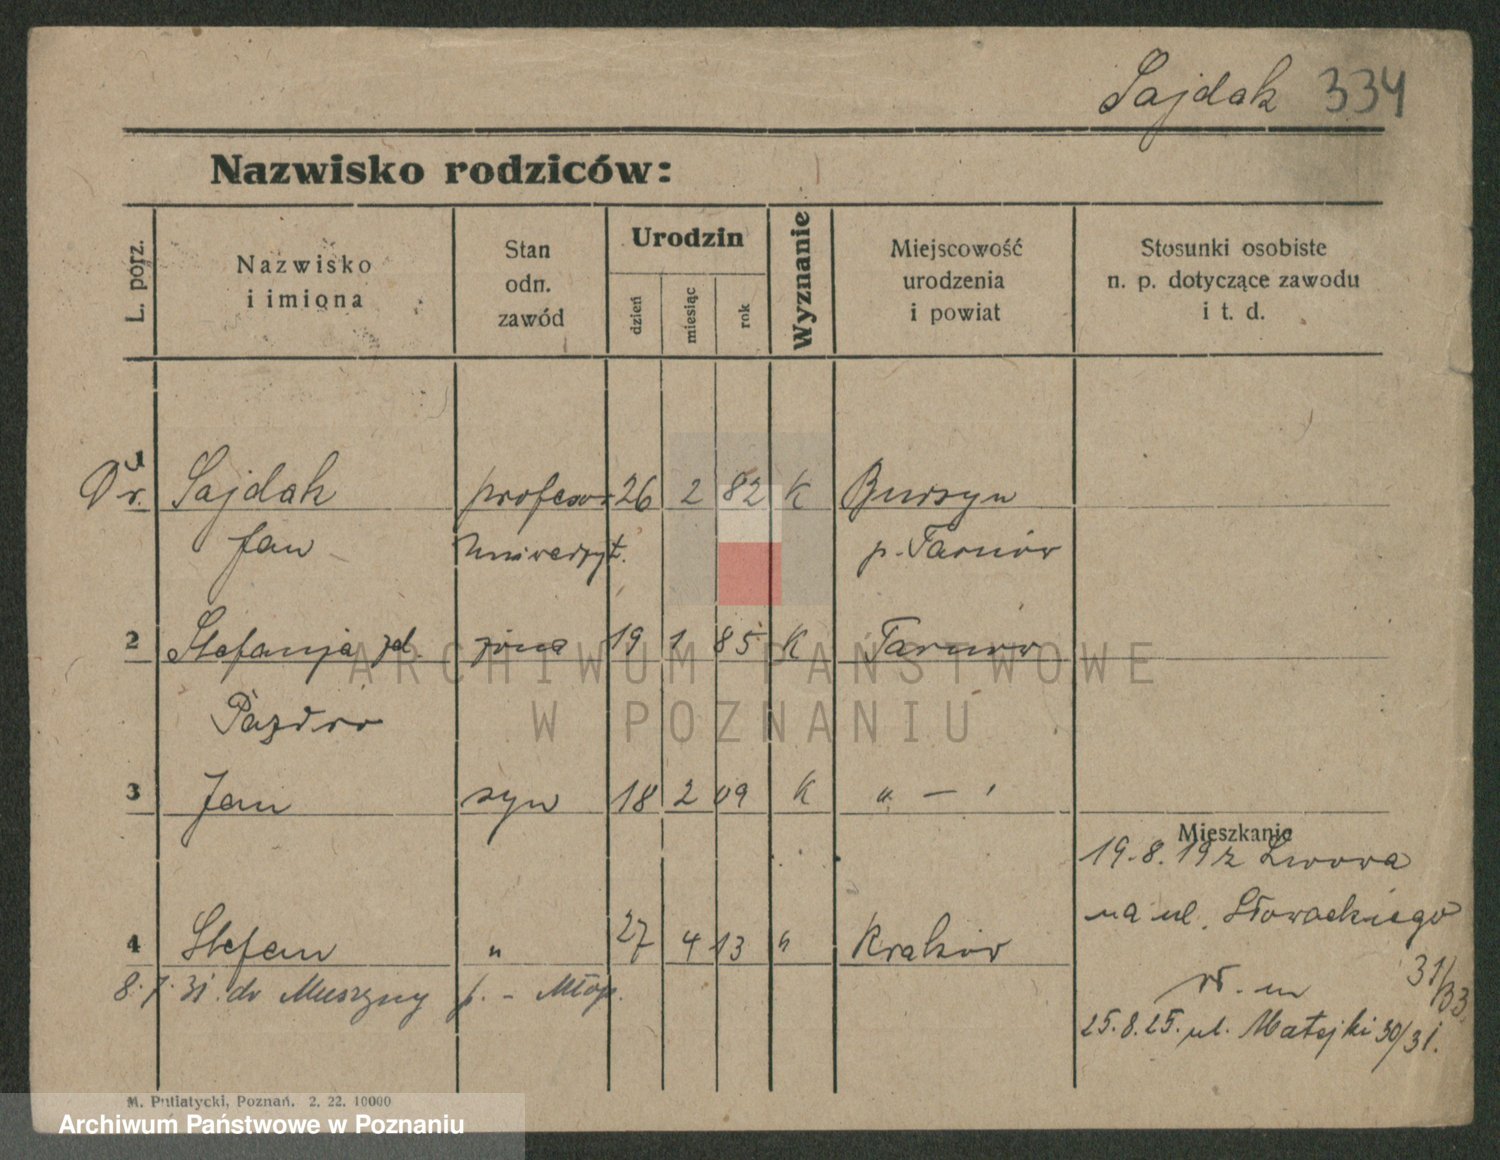 Sajdak 334
Nazwisko rodziców:
L. porz.
Nazwisko
i imiona
Stan
odn.
zawód
Urodzin
dzień
miesiąc
rok
Wyznanie
Miejscowość
urodzenia
i powiat
Stosunki osobiste
n. p. dotyczące zawodu
i t. d.
1
Dr. Sajdak profesor 26 2 82 K Burzyn
Jan Uniwersyt. p. Tarnów
2 Stefanja zd. żona 19 1 85 K Tarnów
Pazdro
3 Jan syn 18 2 09 K " — "
Mieszkanie
19.8.19 z Lwowa
na ul. Słowackiego
31/33.
4 Stefan " 27 4 13 " Kraków
8.7.31. do Muszyny p. - Młop.
25.8.25. ul. Matejki 30/31.
M. Putiatycki, Poznań. 2. 22. 10000
ARCHIWUM PAŃSTWOWE
W POZNANIU
Archiwum Państwowe w Poznaniu